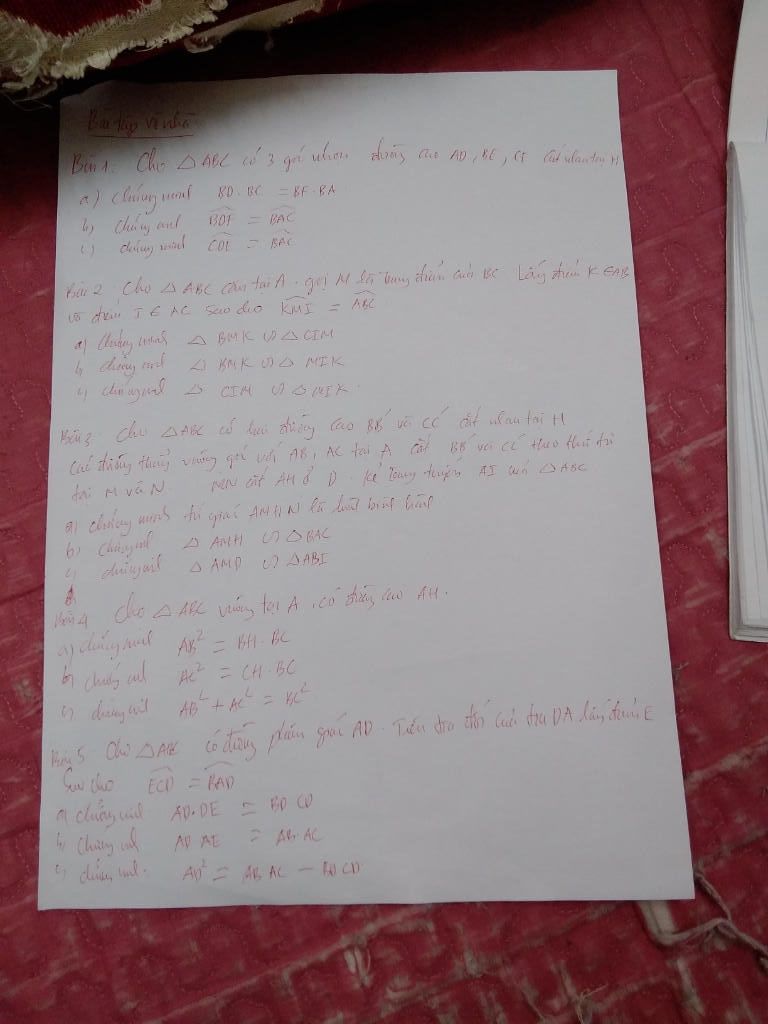 Bài tập về nhà
Bài 1: Cho △ABC có 3 góc nhọn đường cao AD, BE, CF cắt nhau tại H
a) chứng minh BD. BC = BF. BA
b) chứng minh BDF = BAC
c) chứng minh CDE = BAC
Bài 2 Cho △ABC cân tại A. gọi M là trung điểm của BC Lấy điểm K ∈ AB
và điểm I ∈ AC sao cho KMI = ABC
a) chứng minh △ BMK ∽ △CIM
b) chứng minh △ BMK ∽ △ MIK
c) chứng minh △ CIM ∽ △MIK.
Bài 3. Cho △ABC có hai đường cao BB' và CC' cắt nhau tại H
Các đường thẳng vuông góc với AB, AC tại A cắt BB' và CC' theo thứ tự
tại M và N. MN cắt AH ở D. Kẻ trung tuyến AI của △ABC
a) chứng minh tứ giác AMHN là hình bình hành
b) chứng minh △ AMH ∽ △BAC
c) chứng minh △ AMD ∽ △ABI
Bài 4 Cho △ABC vuông tại A, có đường cao AH.
a) chứng minh AB² = BH. BC
b) chứng minh AC² = CH. BC
c) chứng minh AB² + AC² = BC²
Bài 5. Cho △ABC có đường phân giác AD. Trên tia đối của tia DA lấy điểm E
Sao cho ECD = BAD
a) chứng minh. AD. DE = BD CD
b) chứng minh AD AE = AB. AC
c) chứng minh. AD² = AB AC − BD CD